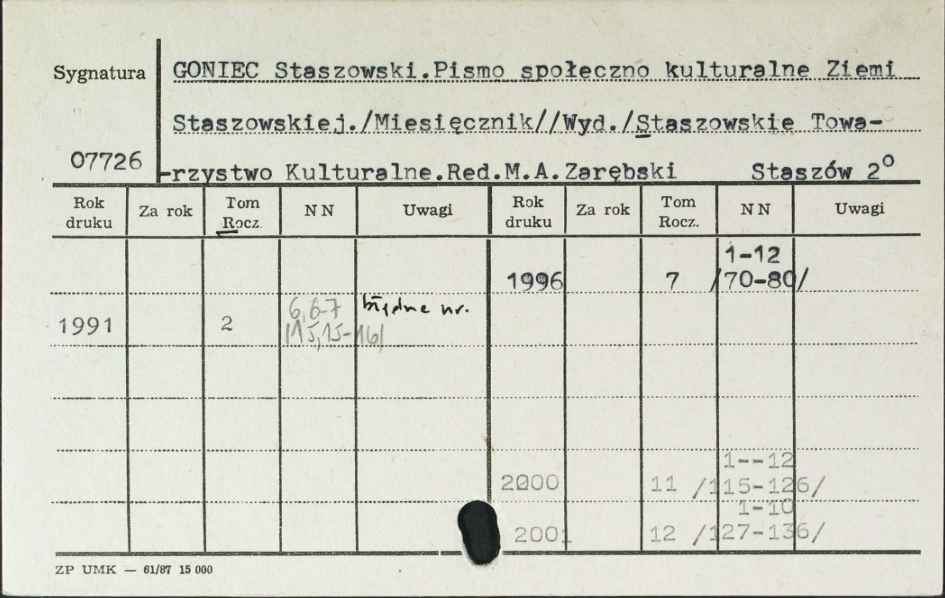 Sygnatura
07726
GONIEC Staszowski.Pismo społeczno kulturalne Ziemi
Staszowskiej./Miesięcznik//Wyd./Staszowskie Towa-
-rzystwo Kulturalne.Red.M.A.Zarębski Staszów 2°
Rok druku Za rok Tom Rocz. NN Uwagi Rok druku Za rok Tom Rocz. NN Uwagi
1-12
1996 7 /70-80/
6,6-7 błędne nr.
1991 2 /15,15-16/
1--12
2000 11 /115-126/
1-10
2001 12 /127-136/
ZP UMK — 61/87 15 000